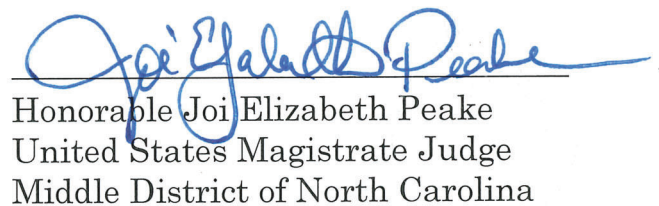 Joi Elizabeth Peake
Honorable Joi Elizabeth Peake
United States Magistrate Judge
Middle District of North Carolina